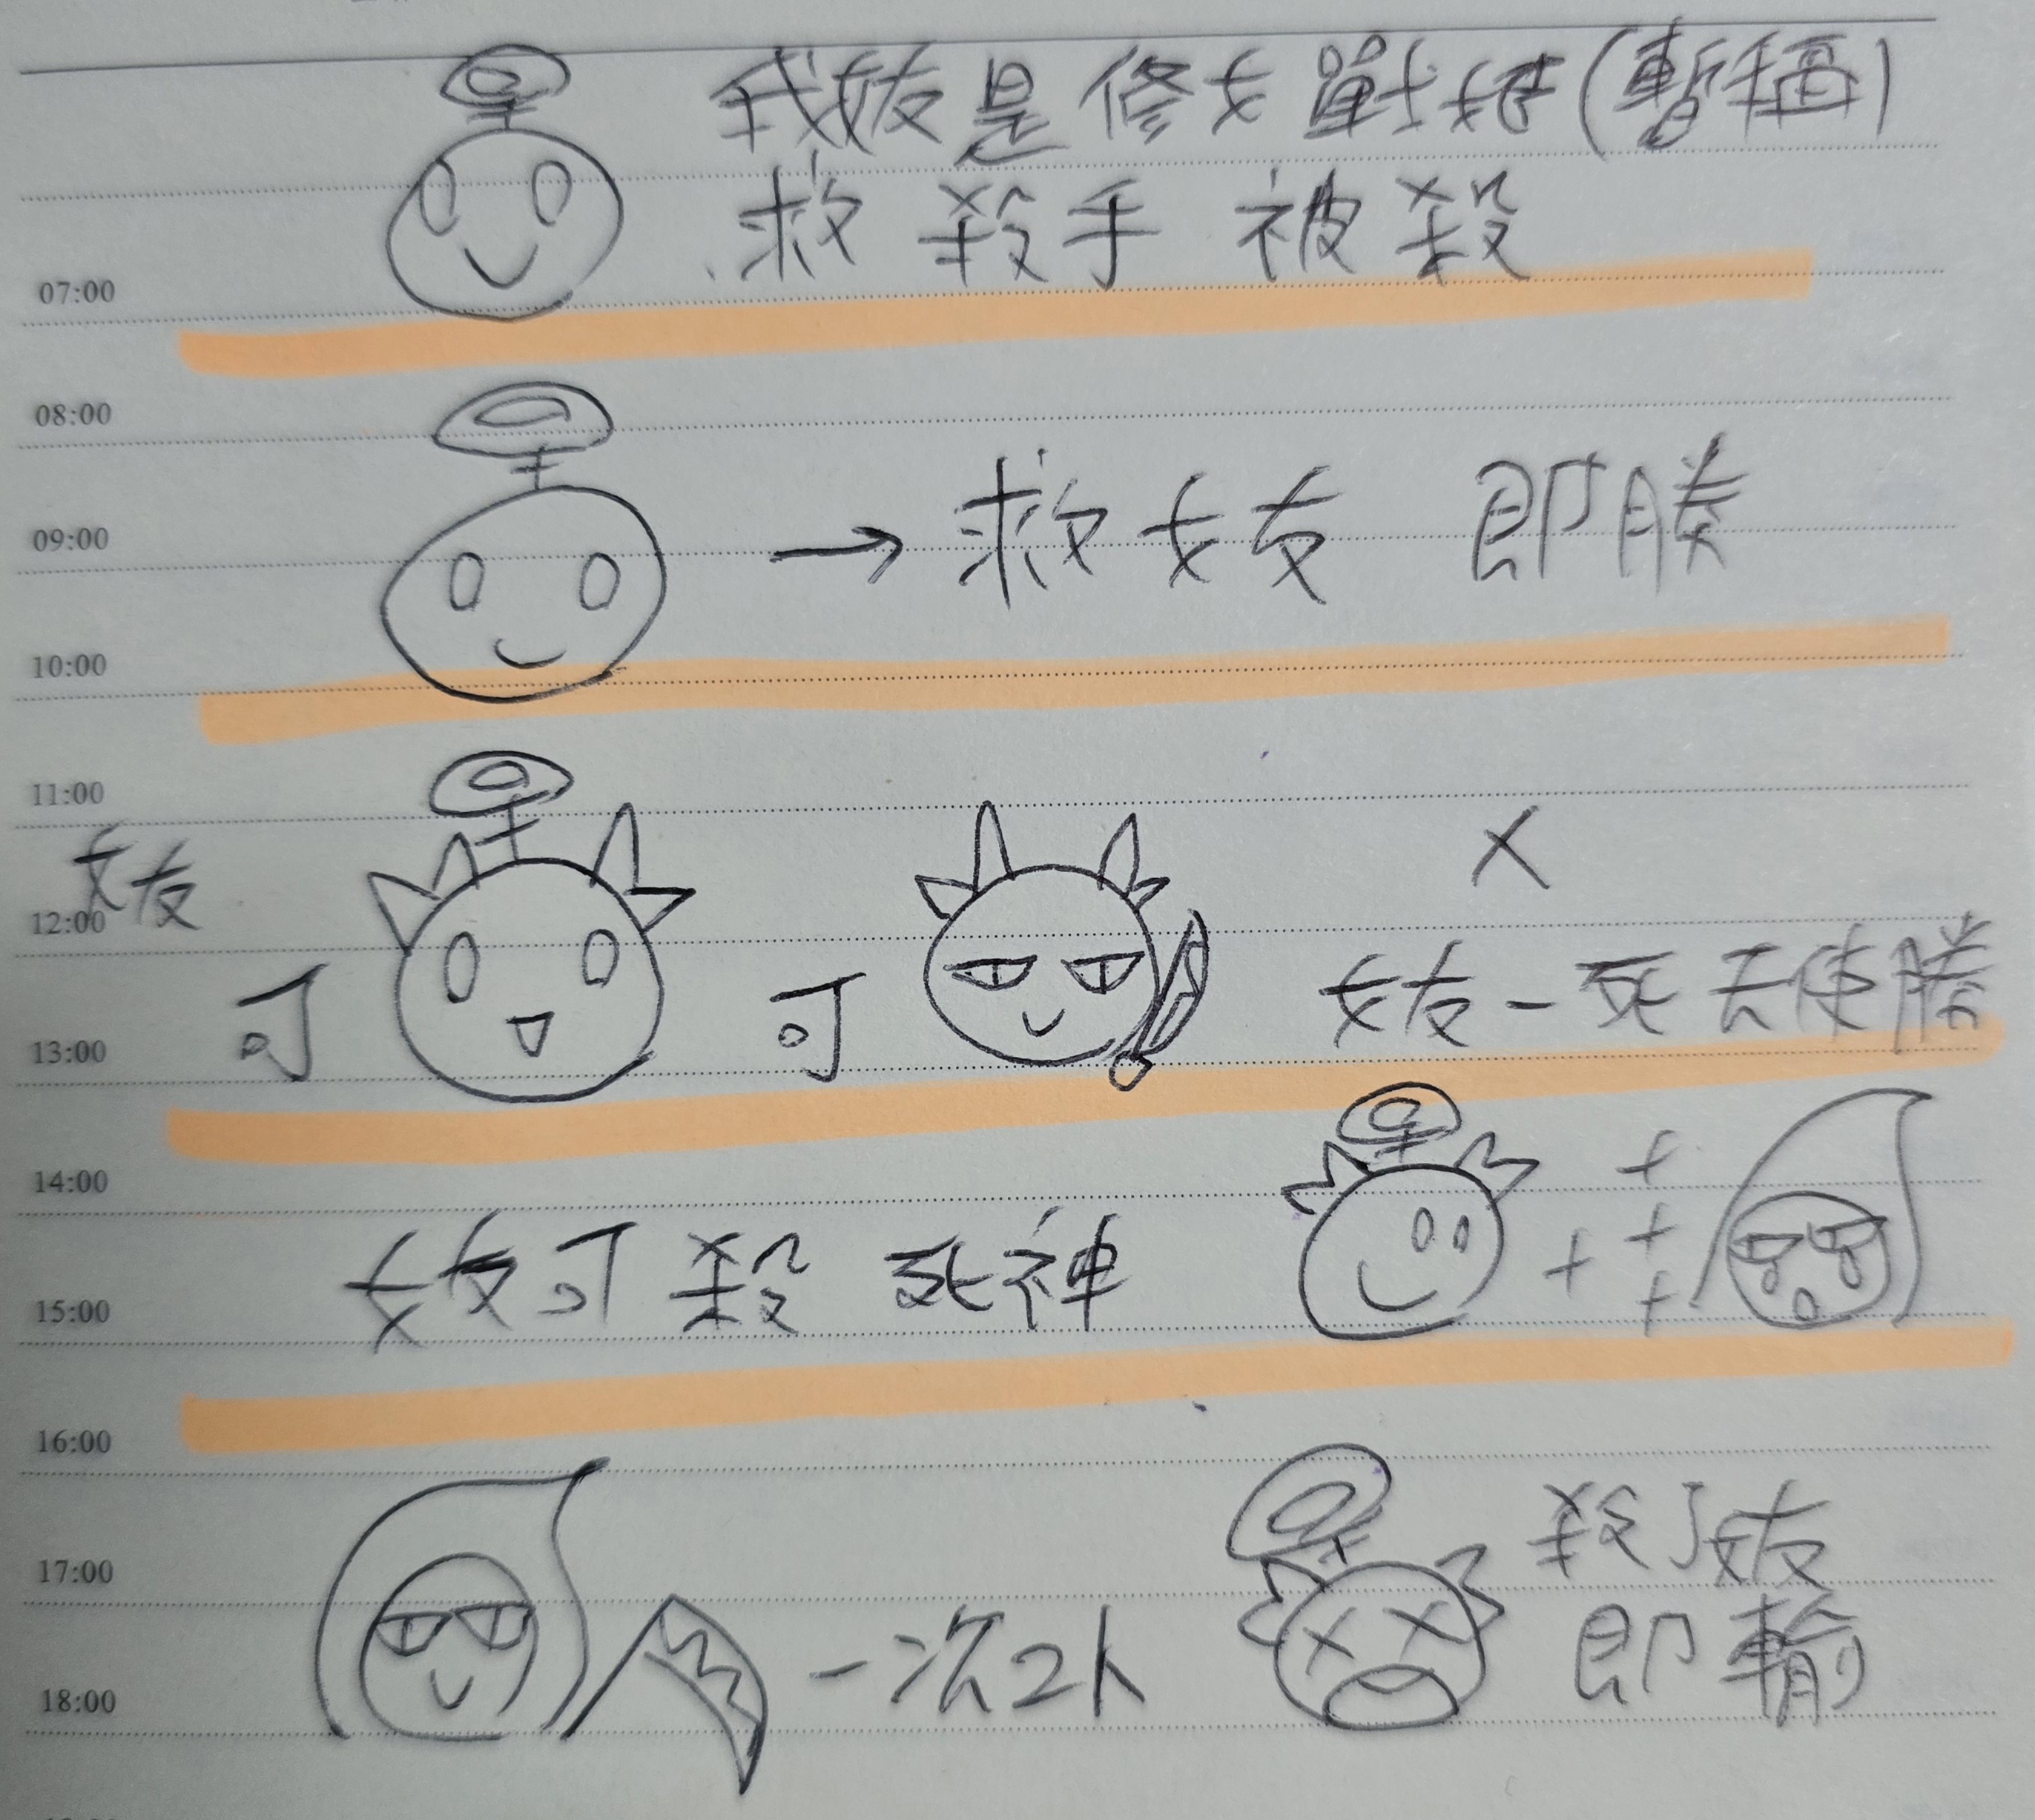 我女友是修女戰姬(暫稱)
救 殺手 被殺
07:00
08:00
→救女友 即勝
09:00
10:00
11:00
女友
12:00
可 可 女友一死天使勝
13:00
14:00
女友可殺 死神
15:00
16:00
殺了女友
17:00
一次2人 即輸
18:00